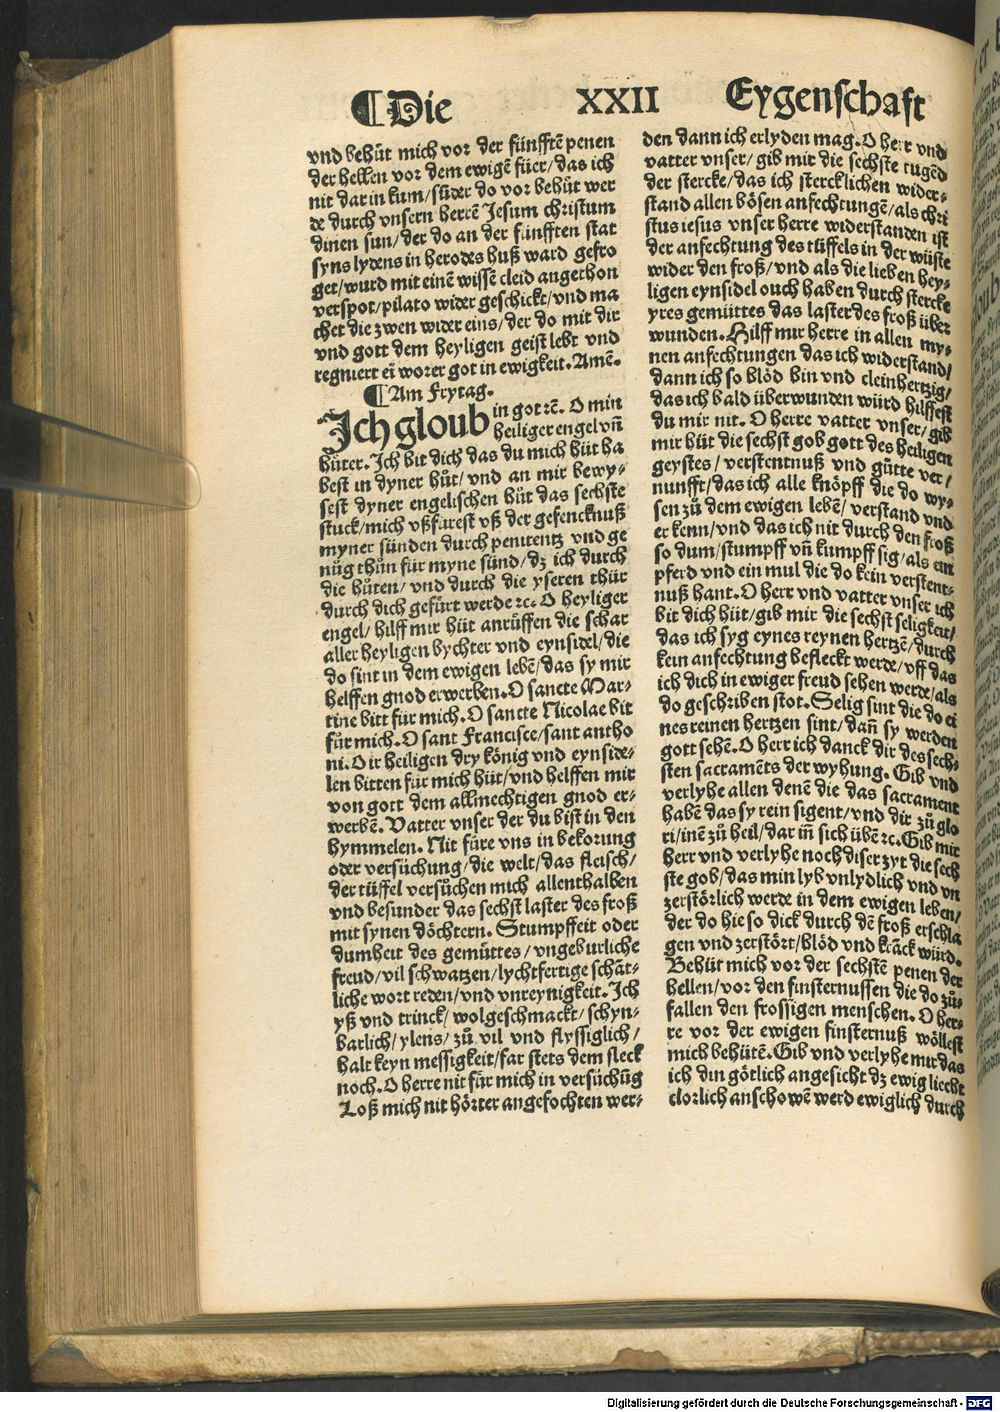 ¶Die XXII Eygenschaft
vnd behüt mich vor der fünfftē penen
der hellen vor dem ewigē füer/das ich
nit dar in kum/sūder do vor behüt wer
de durch vnsern herrē Jesum christum
dinen sun/der do an der fünfften stat
syns lydens in herodes huß ward gefro
get/wurd mit einē wissē cleid angethon
verspot/pilato wider geschickt/vnd ma
chet die zwen wider eins/der do mit dir
vnd gott dem heyligen geist lebt vnd
regniert ei worer got in ewigkeit. Amē.
¶Am Frytag.
Jch gloub in got ꝛc. O min
heiliger engel vn̄
hüter. Jch bit dich das du mich hüt ha
best in dyner hůt/vnd an mir bewy-
sest dyner engelischen hůt das sechste
stuck/mich vßfürest vß der gefencknuß
myner sünden durch penitentz vnd ge
nůg thůn für myne sünd/dz ich durch
die hůten/vnd durch die yseren thür
durch dich gefürt werde ꝛc. O heyliger
engel/hilff mir hüt anrüffen die schar
aller heyligen bychter vnd eynsidel/die
do sint in dem ewigen lebē/das sy mir
helffen gnod erwerben. O sancte Mar-
tine bitt für mich. O sancte Nicolae bit
für mich. O sant Francisce/sant antho
ni. O ir heiligen dry könig vnd eynside-
len bitten für mich hüt/vnd helffen mir
von gott dem allmechtigen gnod er-
werbē. Vatter vnser der du bist in den
hymmelen. Nit füre vns in bekorung
oder versüchung/die welt/das fleisch/
der tüffel versůchen mich allenthalben
vnd besunder das sechst laster des froß
mit synen döchtern. Stumpffeit oder
dumheit des gemüttes/vngeburliche
freud/vil schwatzen/lychtfertige schāt-
liche wort reden/vnd vnreynigkeit. Jch
yß vnd trinck/wolgeschmackt/schyn-
barlich/ylens/zů vil vnd flyssiglich/
halt keyn messigkeit/far stets dem fleck
noch. O herre nit für mich in versüchūg
Loß mich nit hörter angefochten wer-
den dann ich erlyden mag. O herr vnd
vatter vnser/gib mir die sechste tugēd
der stercke/das ich stercklichen wider-
stand allen bösen anfechtungē/als chri
stus iesus vnser herre widerstanden ist
der anfechtung des tüffels in der wüste
wider den froß/vnd als die lieben hey-
ligen eynsidel ouch haben durch stercke
yres gemüttes das laster des froß über
wunden. Hilff mir herre in allen my-
nen anfechtungen das ich widerstand/
dann ich so blöd bin vnd cleinhertzig/
das ich bald überwunden würd hilffest
du mir nit. O herre vatter vnser/gib
mir hüt die sechst gob gott des heiligen
geystes/verstentnuß vnd gütte ver/
nunfft/das ich alle knöpff die do wy-
sen zů dem ewigen lebē/verstand vnd
erkenn/vnd das ich nit durch den froß
so dum/stumpff vn̄ kumpff sig/als ein
pferd vnd ein mul die do kein verstent-
nuß hant. O herr vnd vatter vnser ich
bit dich hüt/gib mir die sechst seligkeit/
das ich syg eynes reynen hertzē/durch
kein anfechtung befleckt werde/vff das
ich dich in ewiger freud sehen werde/als
do geschriben stot. Selig sint die do ei
nes reinen hertzen sint/dan̄ sy werden
gott sehē. O herr ich danck dir des sech-
sten sacramēts der wyhung. Gib vnd
verlyhe allen denē die das sacrament
habē das sy rein sigent/vnd dir zů glo
ri/inē zů heil/dar in̄ sich übē ꝛc. Gib mir
herr vnd verlyhe noch diser zyt die sech
ste gob/das min lyb vnlydlich vnd vn
zerstörlich werde in dem ewigen leben/
der do hie so dick durch dē froß erschla
gen vnd zerstört/blöd vnd krāck würd.
Behüt mich vor der sechstē penen der
hellen/vor den finsternussen die do zů-
fallen den frossigen menschen. O her-
re vor der ewigen finsternuß wöllest
mich behütē. Gib vnd verlyhe mir das
ich din götlich angesicht dz ewig liecht
clorlich anschowē werd ewiglich durch
Digitalisierung gefördert durch die Deutsche Forschungsgemeinschaft - DFG